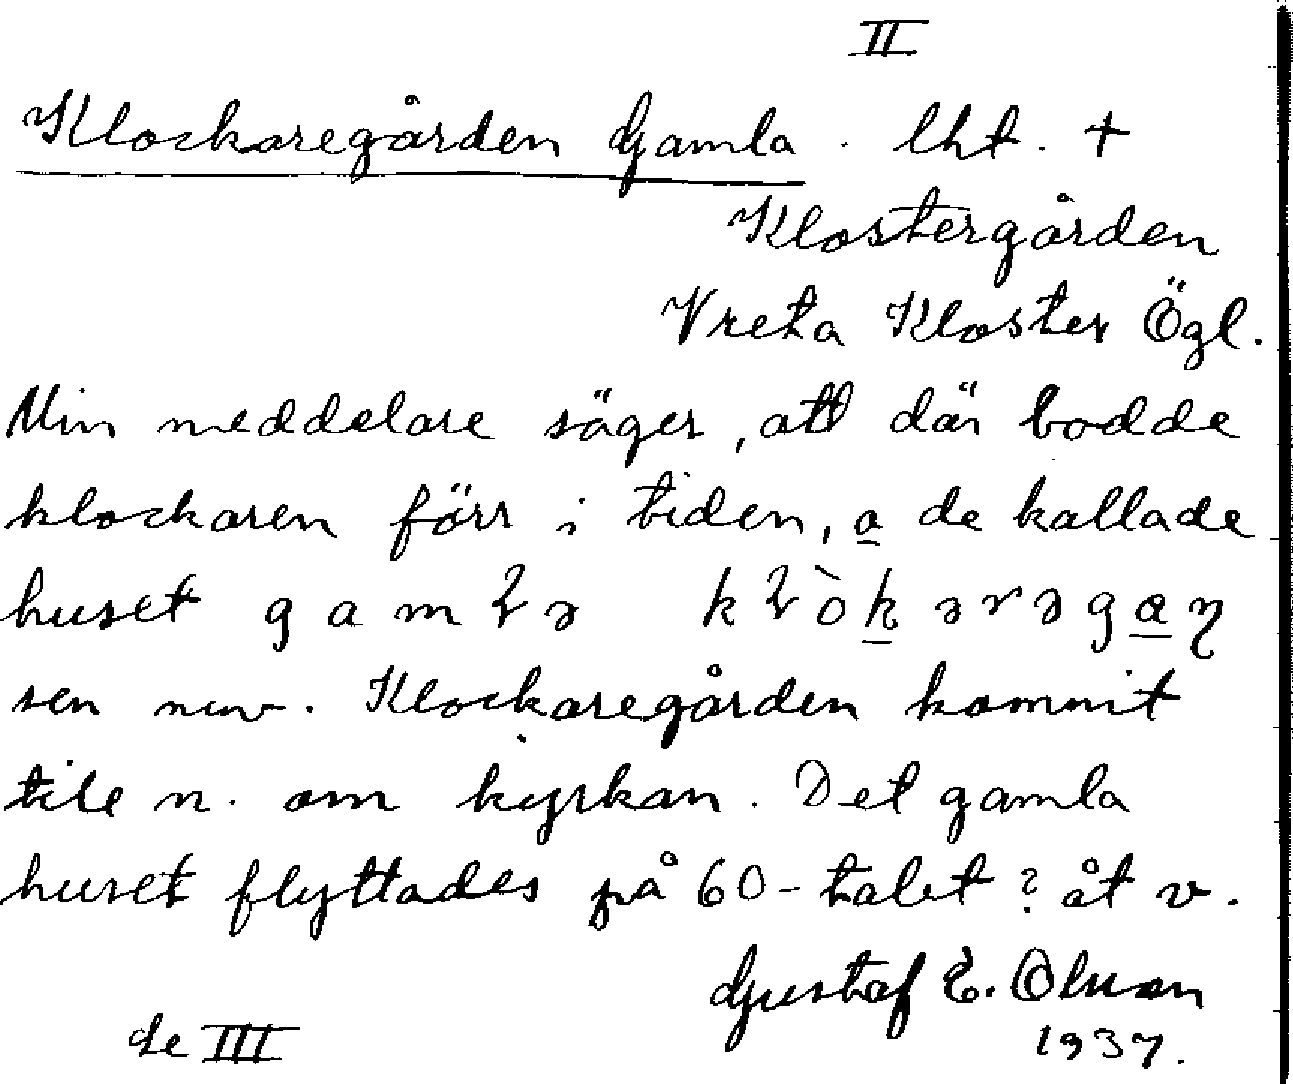 II
Klockaregården Gamla . lht. +
Klostergården
Vreta Kloster Ögl.
Min meddelare säger, att där bodde
klockaren förr i tiden, a de kallade
huset
sen nuv. Klockaregården kommit
till n. om kyrkan. Det gamla
huset flyttades på 60-talet ? åt v.
Gustaf E. Olsson
se III 1937.